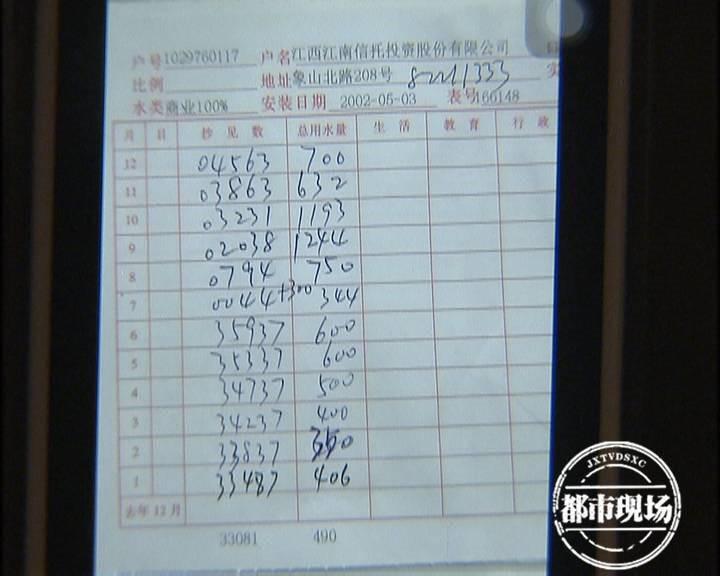 户号1029760117 户名江西江南信托投资股份有限公司
比例 地址象山北路208号 82211333 实
水类商业100% 安装日期 2002-05-03 表号166148
月 日 抄见数 总用水量 生活 教育 行政
12 04563 700
11 03863 632
10 03231 1193
9 02038 1244
8 0794 750
7 0044+300 344
6 35937 600
5 35337 600
4 34737 500
3 34237 400
2 33837 350
1 33487 406
去年12月
33081 490
JXTVDSXC
都市现场